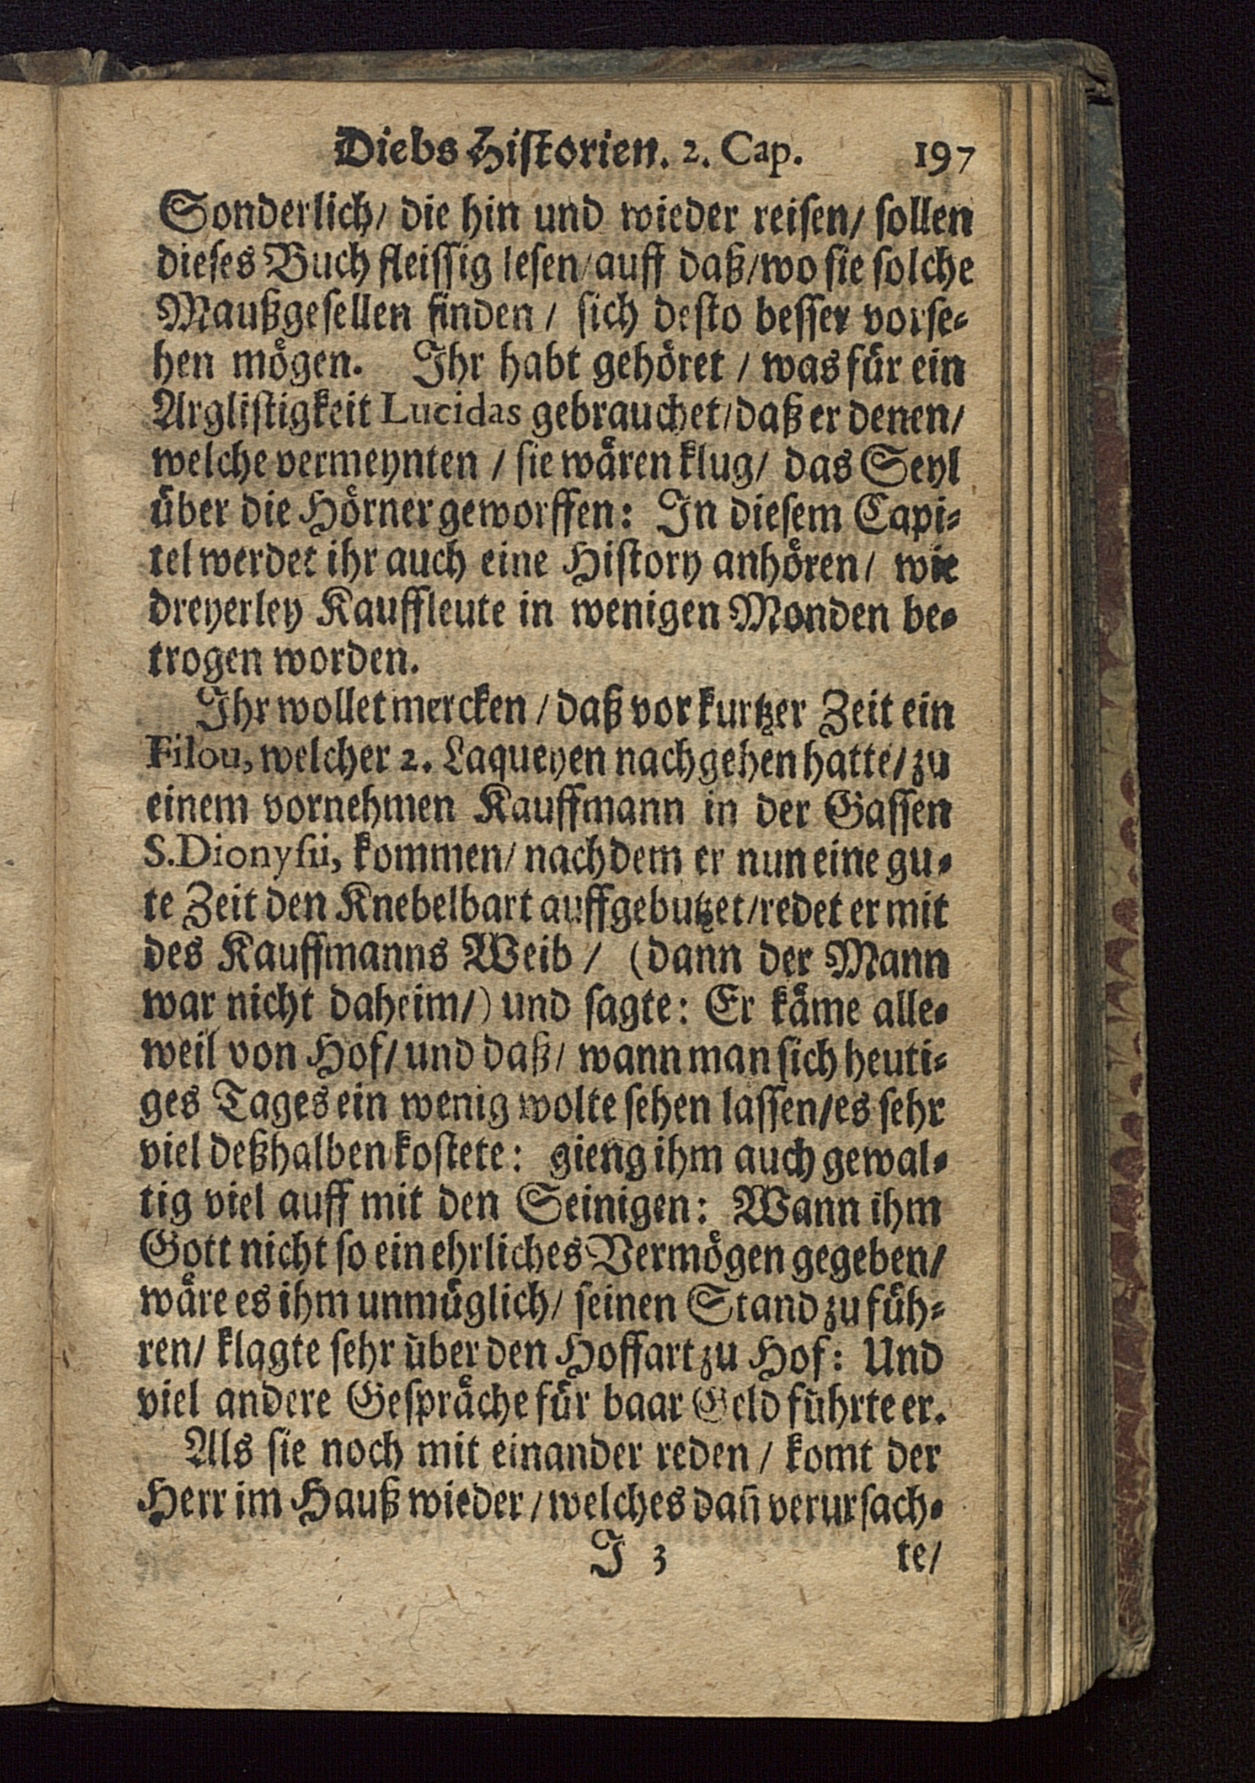 Diebs Historien. 2. Cap. 197
Sonderlich/ die hin und wieder reisen/ sollen
dieses Buch fleissig lesen/auff daß/wo sie solche
Maußgesellen finden / sich desto besser vorse-
hen mögen. Ihr habt gehöret / was für ein
Arglistigkeit Lucidas gebrauchet/daß er denen/
welche vermeynten / sie wären klug/ das Seyl
über die Hörner geworffen: In diesem Capi-
tel werdet ihr auch eine History anhören/ wie
dreyerley Kauffleute in wenigen Monden be-
trogen worden.
Ihr wollet mercken / daß vor kurtzer Zeit ein
Filou, welcher 2. Laqueyen nachgehen hatte/ zu
einem vornehmen Kauffmann in der Gassen
S. Dionysii, kommen/ nachdem er nun eine gu-
te Zeit den Knebelbart auffgebutzet/redet er mit
des Kauffmanns Weib / (dann der Mann
war nicht daheim/) und sagte: Er käme alle-
weil von Hof/ und daß/ wann man sich heuti-
ges Tages ein wenig wolte sehen lassen/es sehr
viel deßhalben kostete: gieng ihm auch gewal-
tig viel auff mit den Seinigen: Wann ihm
Gott nicht so ein ehrliches Vermögen gegeben/
wäre es ihm unmüglich/ seinen Stand zu füh-
ren/ klagte sehr über den Hoffart zu Hof: Und
viel andere Gespräche für baar Geld führte er.
Als sie noch mit einander reden / komt der
Herr im Hauß wieder / welches dañ verursach-
I 3 te/